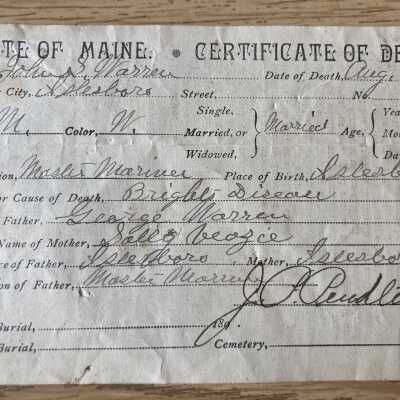 TE OF MAINE. • CERTIFICATE OF DE
John S. Warren Date of Death, Aug.
r City, Islesboro Street, No.
Single,
M. Color, W. Married, or Married Age,
Widowed,
Yea
Mo
Da
ion, Master Mariner Place of Birth, Islesb
or Cause of Death, Brights Disease
Father, George Warren
Name of Mother, Sally Veazie
ce of Father, Islesboro Mother, Islesbo
on of Father, Master Marin
J. P. Pendle
Burial, 189 .
Burial, Cemetery,